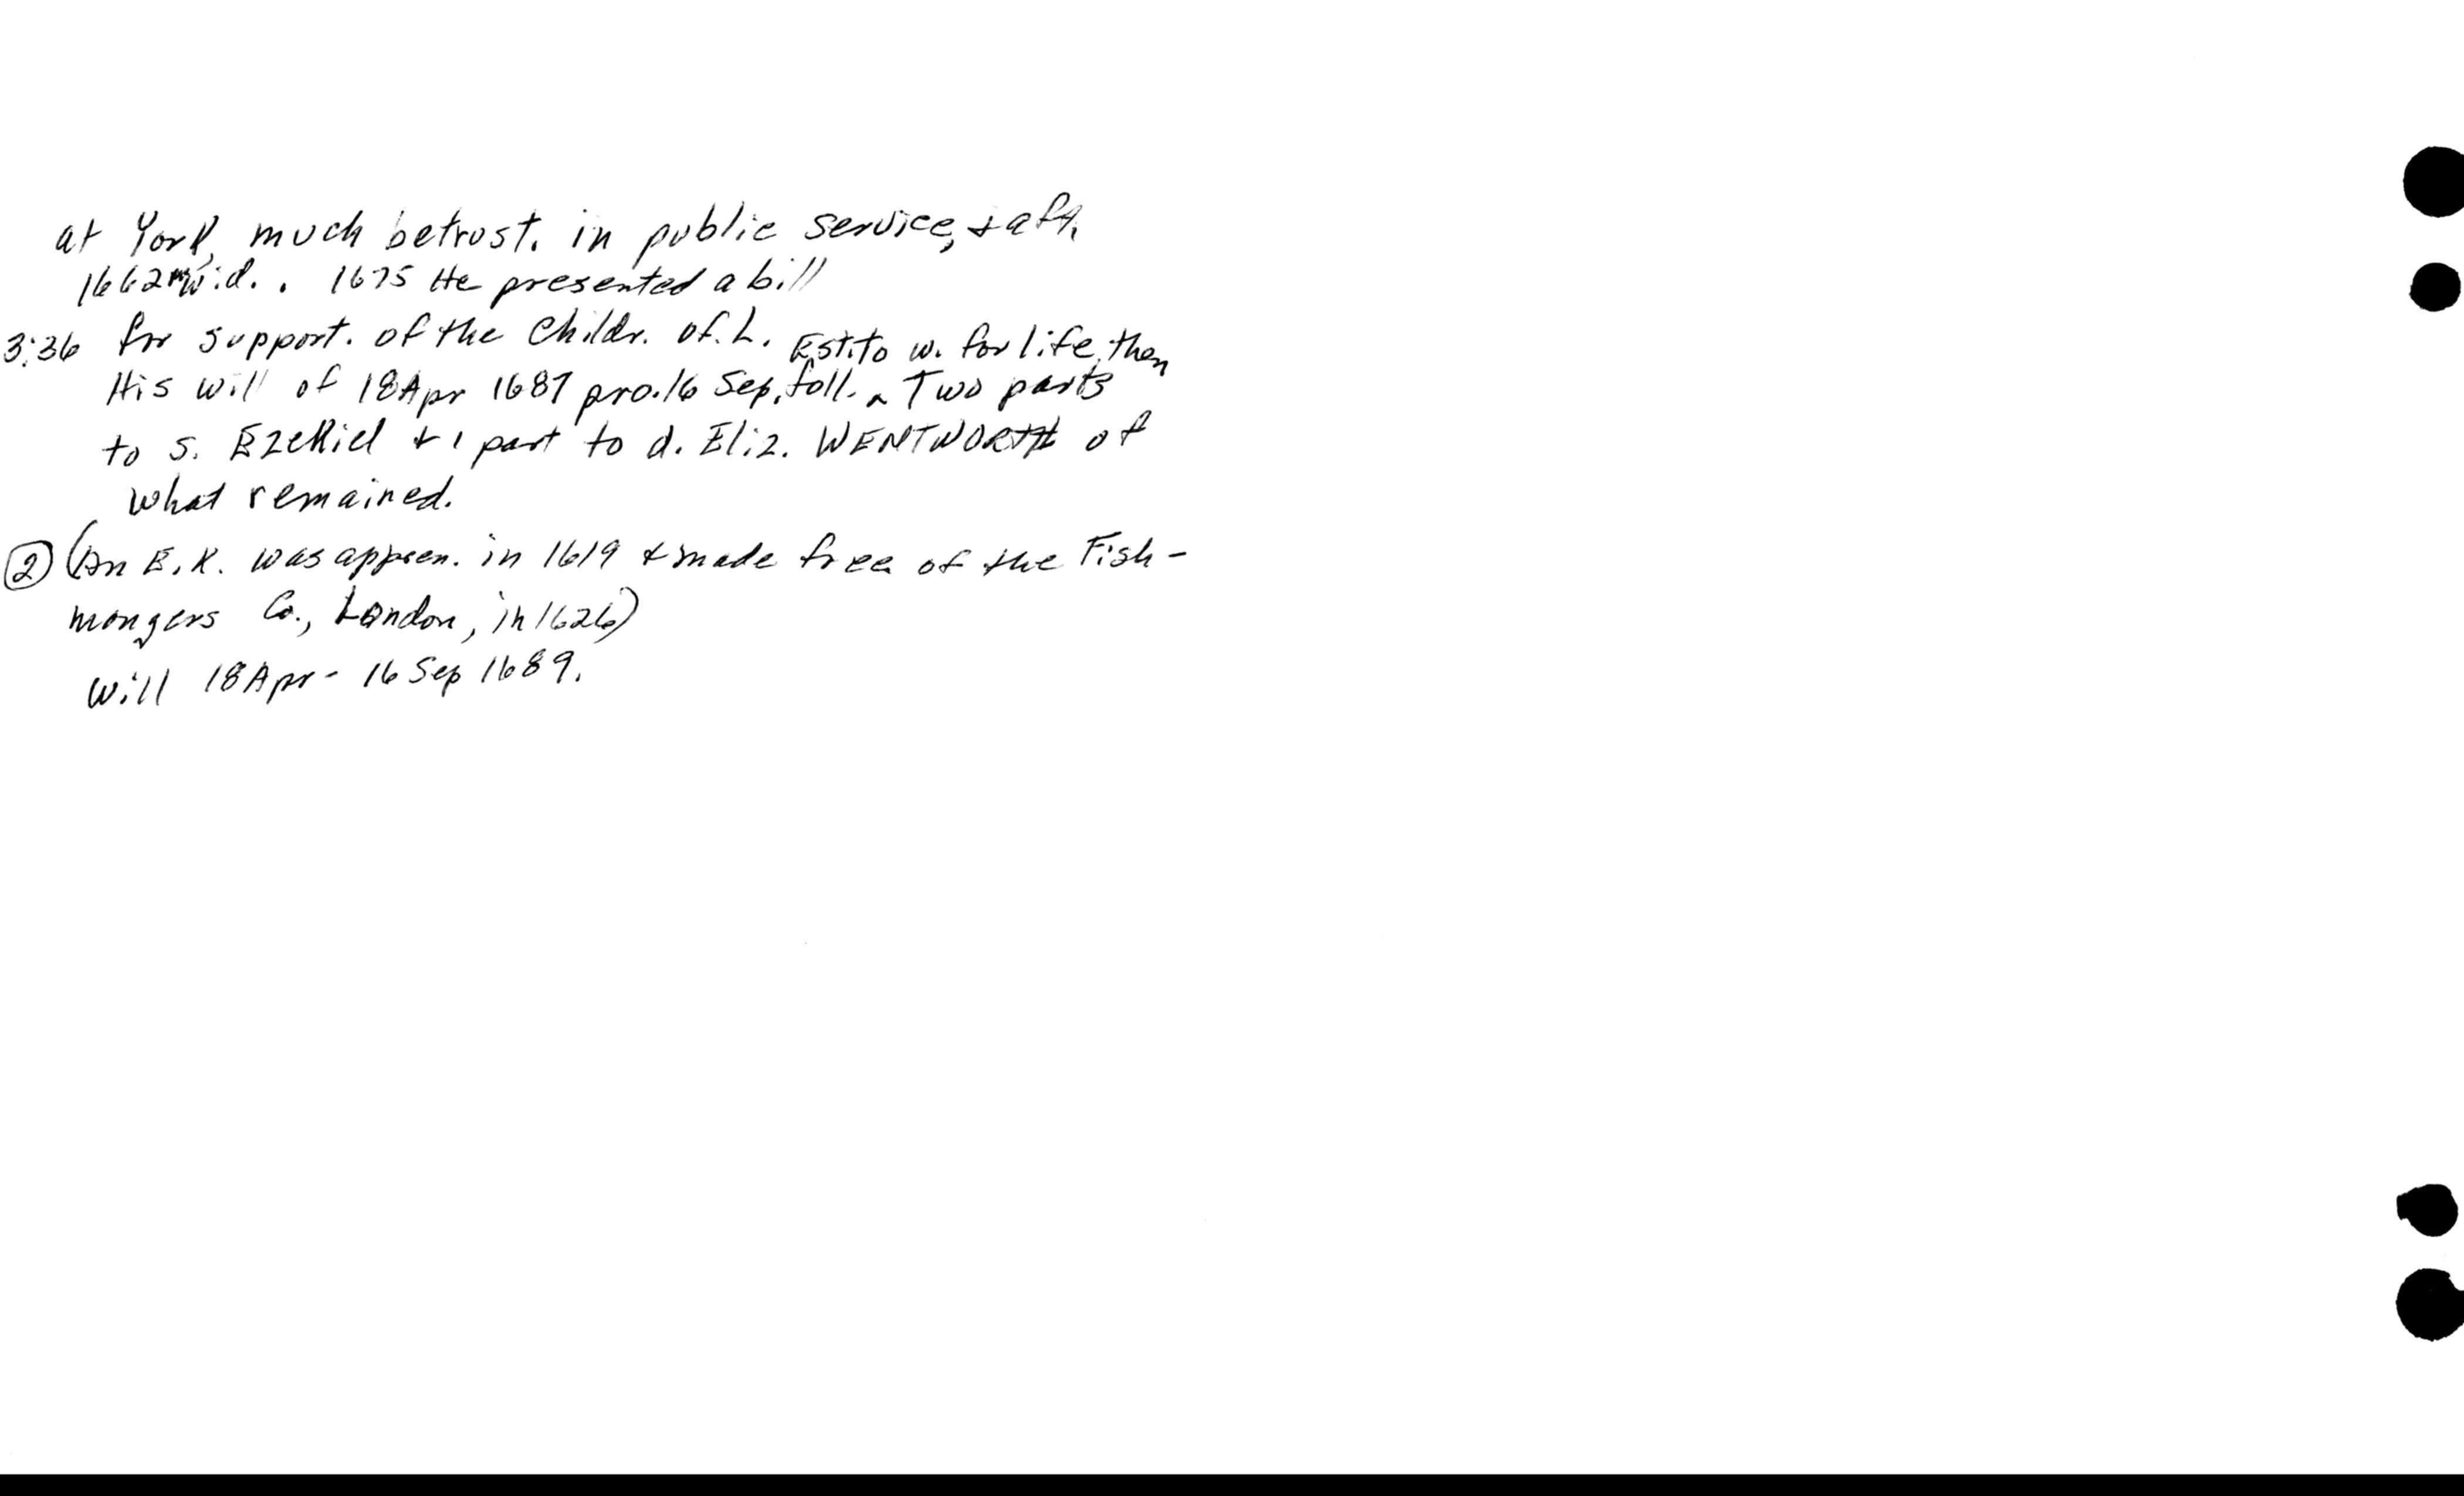 at York, much betrust. in public service, & aft.
1662 m. wid. . 1675 He presented a bill
3:36 for support. of the Childr. of. L.
Est. to w. for life, then
His will of 18 Apr 1687 pro. 16 Sep. foll. ^ Two parts
to s. Ezekiel & 1 part to d. Eliz. WENTWORTH of
what remained.
② (An E.K. was appren. in 1619 & made free of the Fish-
mongers Co., London, in 1626)
Will 18 Apr - 16 Sep 1689.